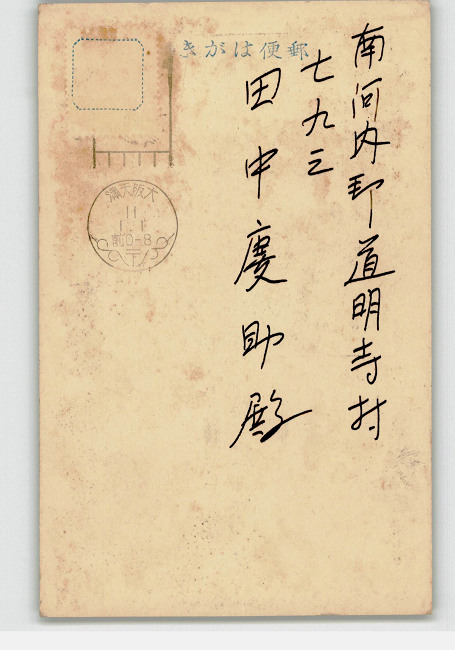 郵便はがき
南河内郡道明寺村
七九三
田中慶助殿
大阪天満
11
1.1
前0-8